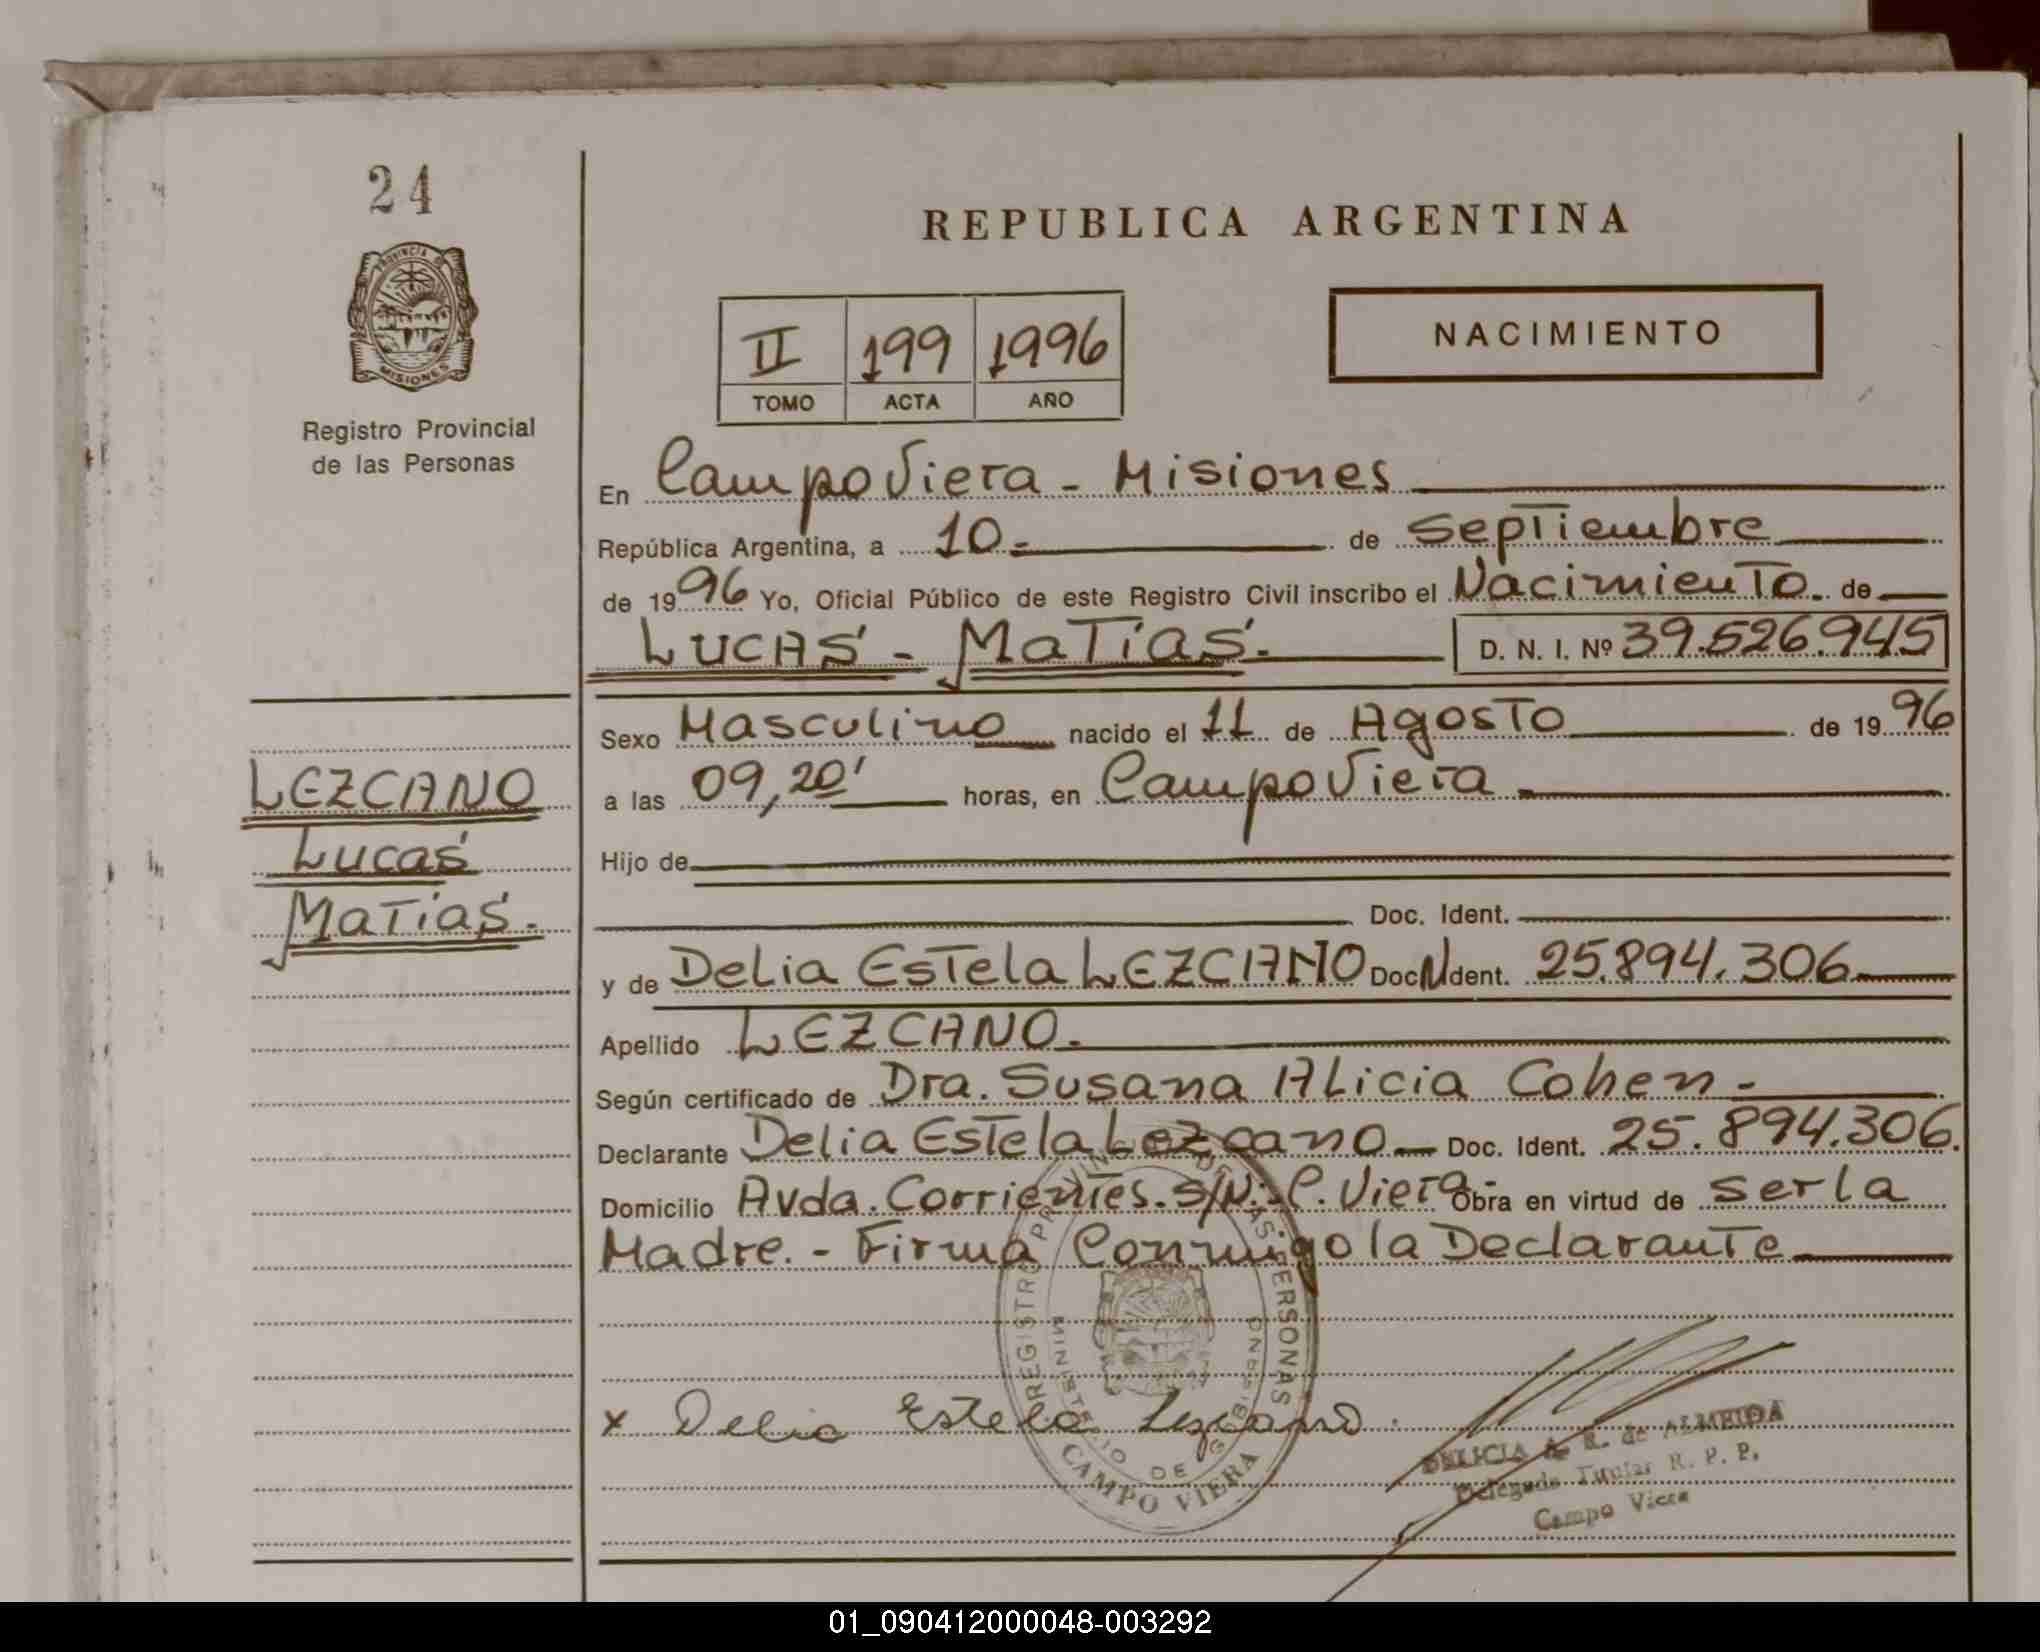 24
PROVINCIA DE
MISIONES
Registro Provincial
de las Personas
REPUBLICA ARGENTINA
II 199 1996
TOMO ACTA AÑO
NACIMIENTO
En Campo Viera - Misiones
República Argentina, a 10.- de Septiembre
de 1996 Yo, Oficial Público de este Registro Civil inscribo el Nacimiento. de
LUCAS - Matías.- D. N. I. Nº 39.526.945
Sexo Masculino nacido el 11 de Agosto de 1996
LEZCANO
a las 09,20' horas, en Campo Viera
Lucas
Hijo de
Matías.
Doc. Ident.
y de Delia Estela LEZCANO Doc. Ident. 25.894.306
Apellido LEZCANO.
Según certificado de Dra. Susana Alicia Cohen -
Declarante Delia Estela Lezcano Doc. Ident. 25.894.306.
Domicilio Avda. Corrientes. s/N.- C. Viera Obra en virtud de ser la
Madre. - Firma Conmigo la Declarante
REGISTRO PROVINCIAL DE LAS PERSONAS
MINISTERIO DE GOBIERNO
CAMPO VIERA
x Delia Estela Lezcano.
DELICIA R. de ALMEIDA
Delegada Titular R. P. P.
Campo Viera
01_090412000048-003292